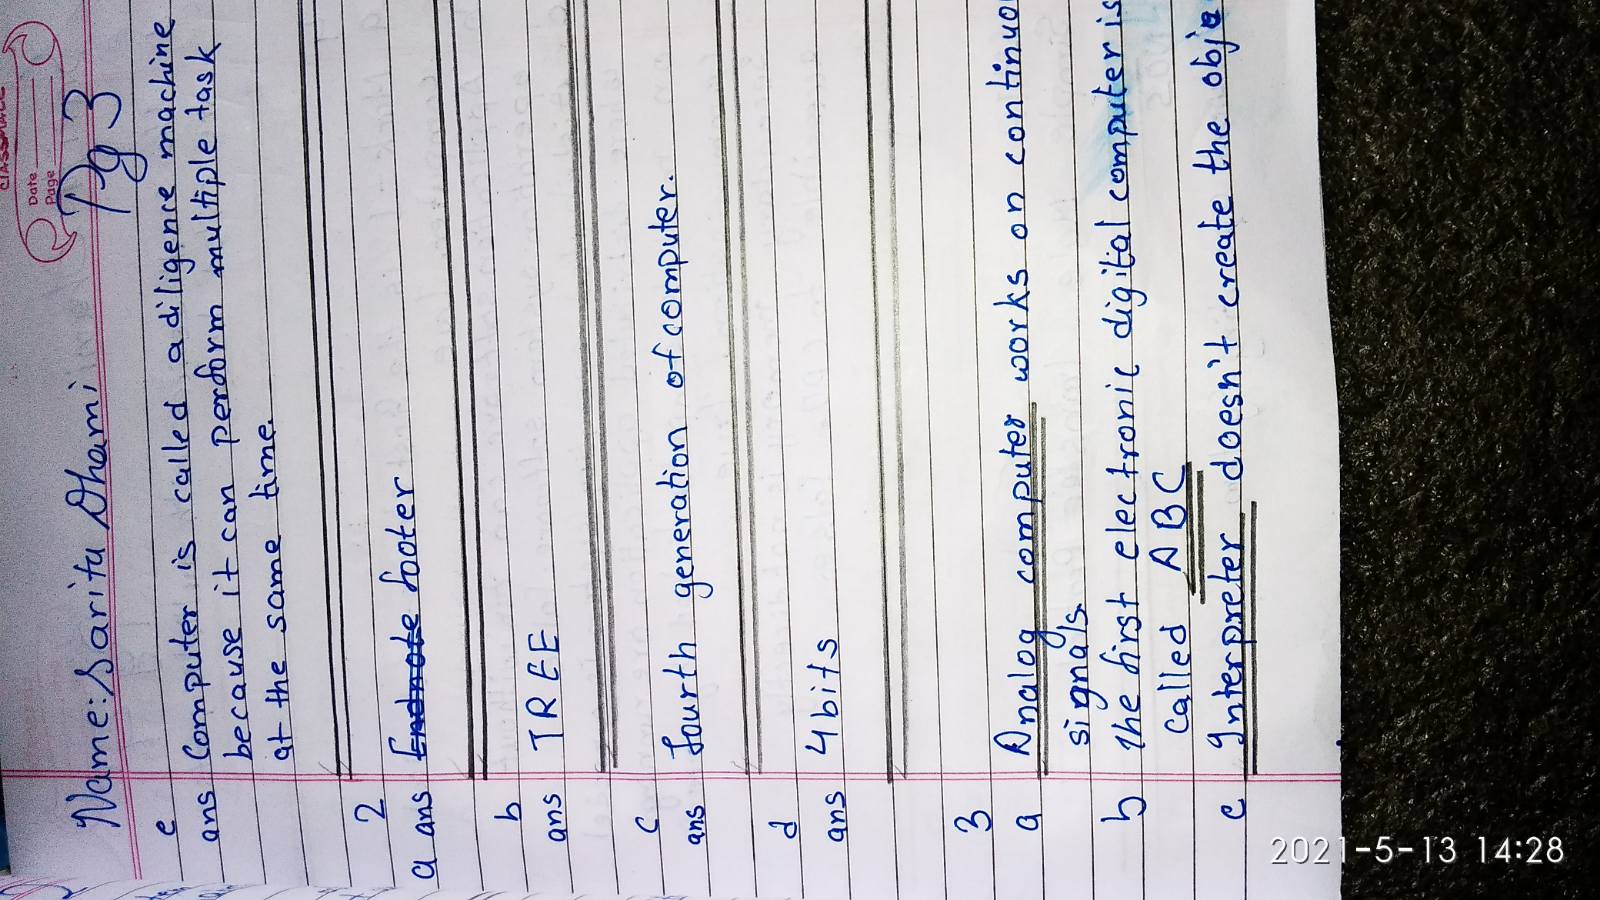 CLASSMATE
Date
Page
Pg 3
Name: Sarita Dhami
e
ans Computer is called a diligence machine
because it can perform multiple task
at the same time.
2
a ans Endnote footer
b
ans TREE
c
ans fourth generation of computer.
d
ans 4 bits
3
a Analog computer works on continuo
signals.
b The first electronic digital computer is
called ABC
c Interpreter doesn't create the obje
2021-5-13 14:28